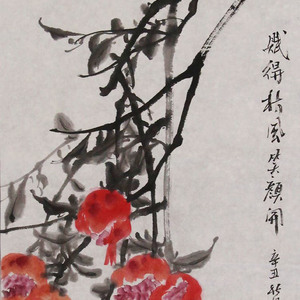 賦得秋風笑顏開
辛丑